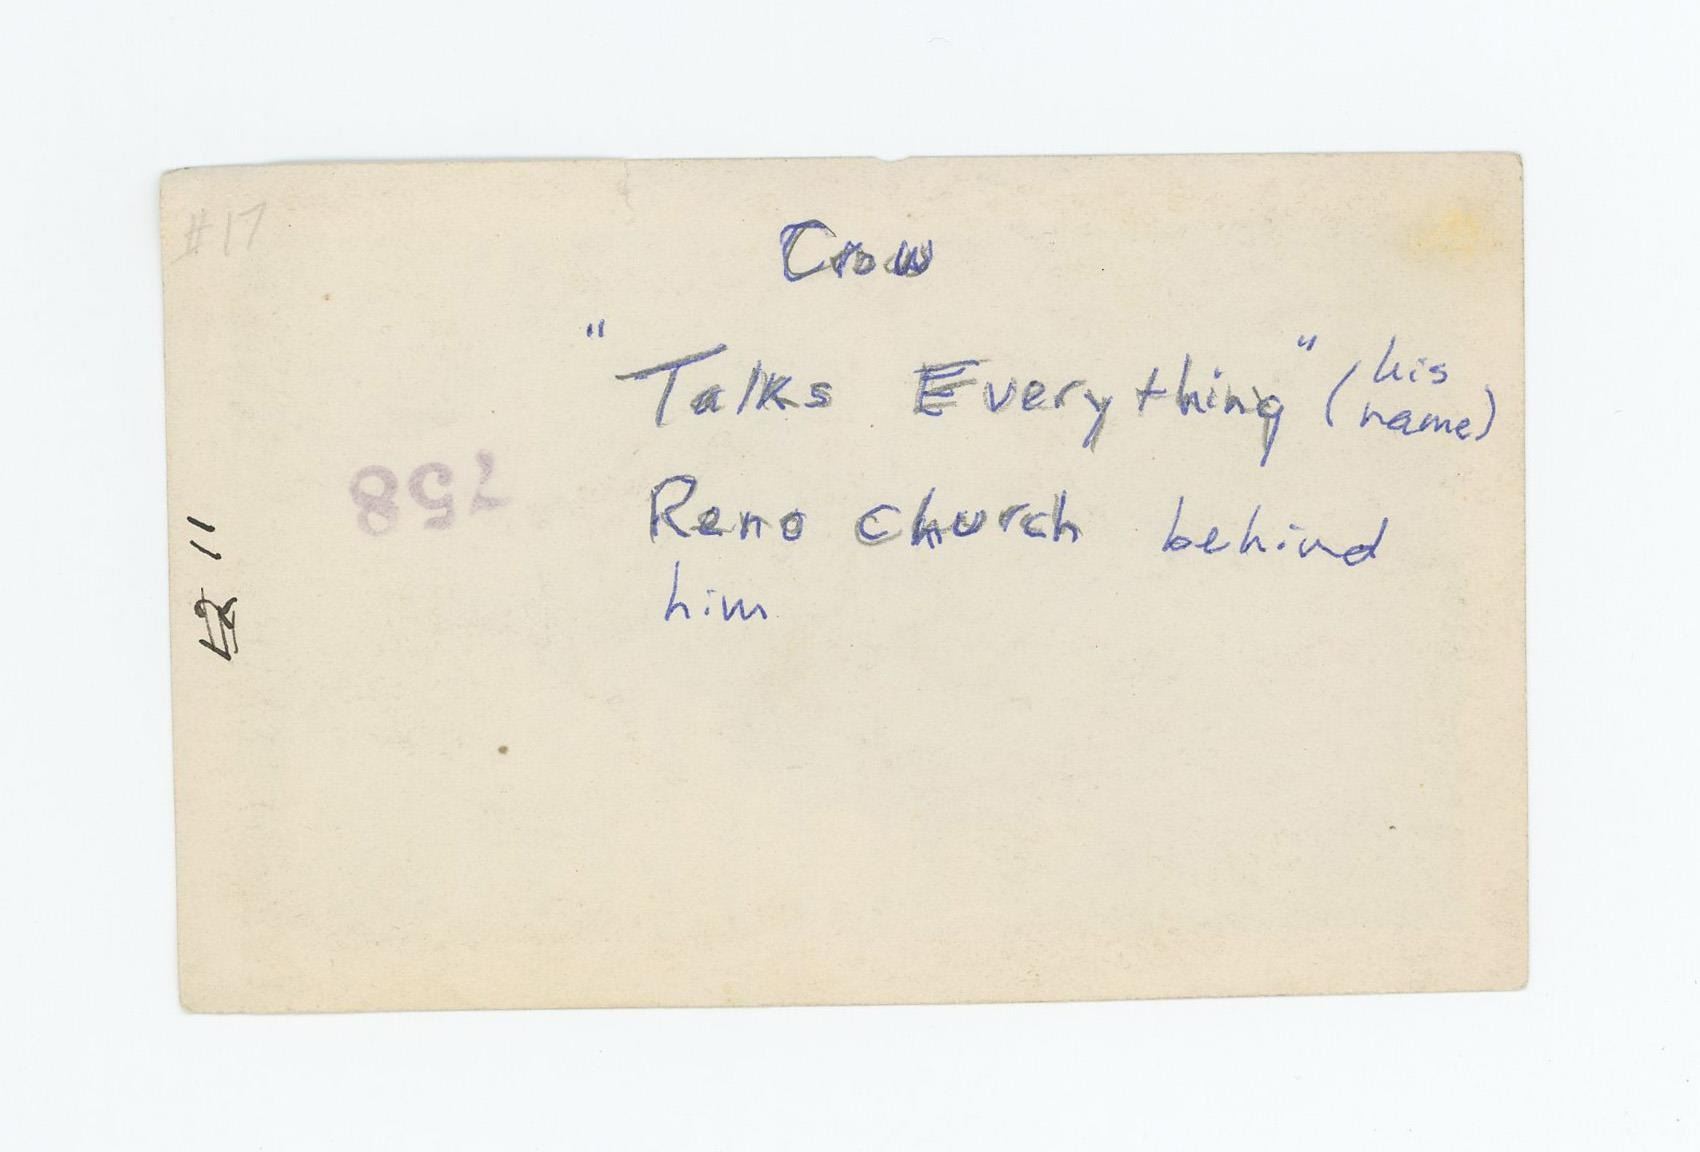 #17
Crow
"Talks Everything" (his name)
Reno church behind
him
758
11